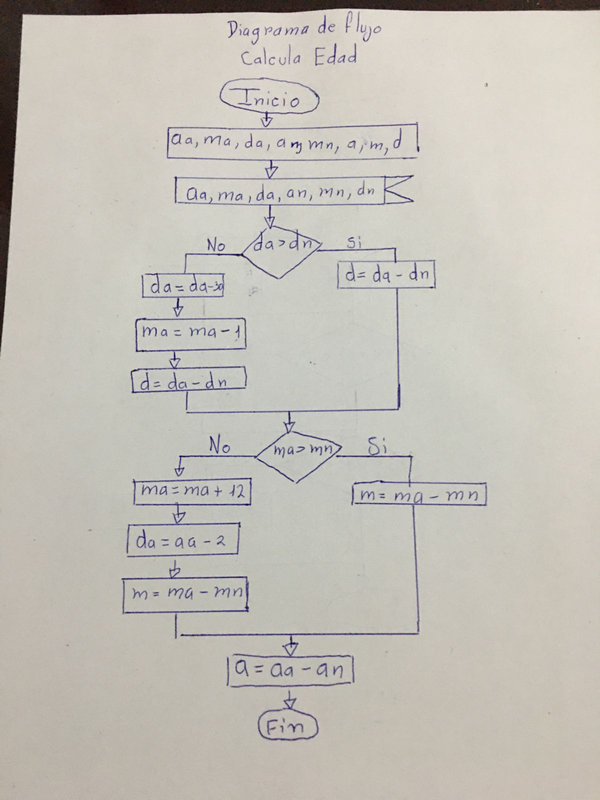 Diagrama de flujo
Calcula Edad
Inicio
aa, ma, da, an, mn, a, m, d
aa, ma, da, an, mn, dn
da>dn
No
Si
da=da-30
d=da-dn
ma=ma-1
d=da-dn
ma>mn
No
Si
ma=ma+12
m=ma-mn
da=aa-2
m=ma-mn
a=aa-an
Fin